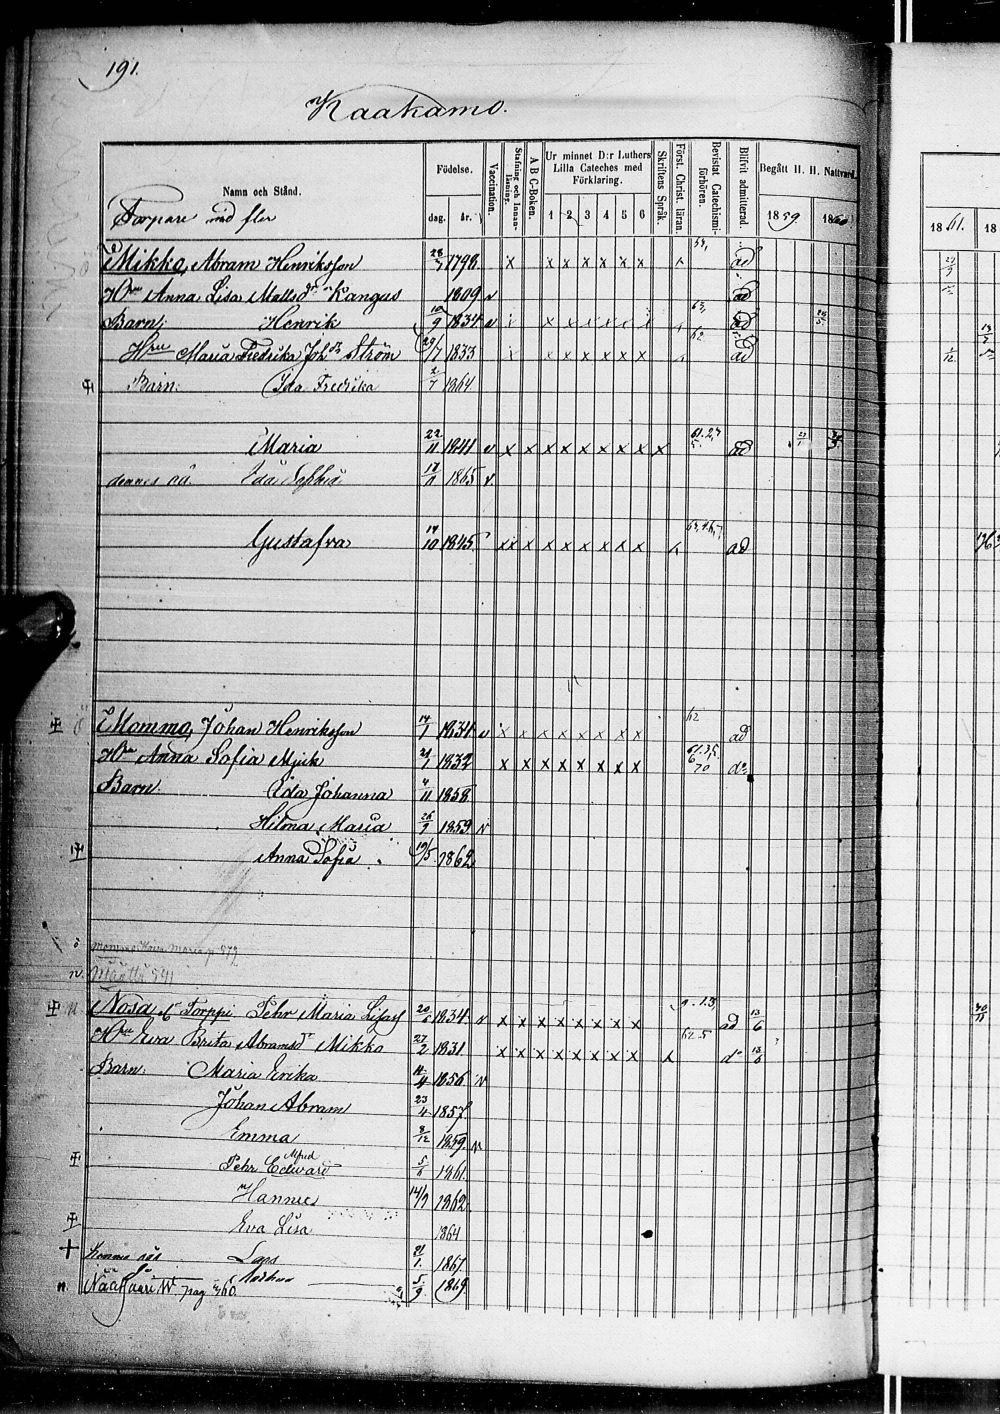 191.
Kaakamo.
Namn och Stånd.
Födelse.
dag. år.
Vaccination.
Stafning och Innanläsning.
A B C-Boken.
Ur minnet D:r Luthers Lilla Cateches med Förklaring.
1 2 3 4 5 6
Skriftens Språk.
Först. Christ. läran.
Bevistat Catechismiförhören.
Blifvit admitterad.
Begått H. H. Nattvard.
1859 1860
1861. 18
Torpare med fler
Mikko, Abram Henriksson 28/7 1798 x x x x x x x ad
Hru Anna Lisa Mattsdr Kangus 1809 v ad
Barn: Henrik 1834 v x x x x x x ad
Hru Maria Fredrika Johdr Ström 29/7 1833 x x x x x x ad
Barn: Ida Fredrika 2/7 1864
Maria 22/11 1841 v x x x x x x x x x ad
dennes oä. Ida Sophia 1865 v.
Gustafva 14/10 1845 x x x x x x x x ad
Momma, Johan Henriksson 1834 v x x x x x x x 62 ad
Hru Anna Sofia Mjuk 21/1 1832 x x x x x x x x 70 do
Barn Ida Johanna 4/11 1858
Hilma Maria 26/9 1859 v
Anna Sofia 19/5 1862
Momma Maria p 579
Määttä 541
Nosa, Torppi Pehr 20/6 1834. v x x x x x x x x ad 13/6
Hru Eva Brita Abramsdr Mikko 27/2 1831 x x x x x x x x do 13/6
Barn: Maria Erika 11/4 1856 v
Johan Abram 23/4 1857
Emma 8/12 1859. v
Alfred
Pehr Edward 5/6 1861.
Hannu 14/9 1862
Eva Lisa 1864
Lars 21/1. 1867
pag 360. 5/9 1869.